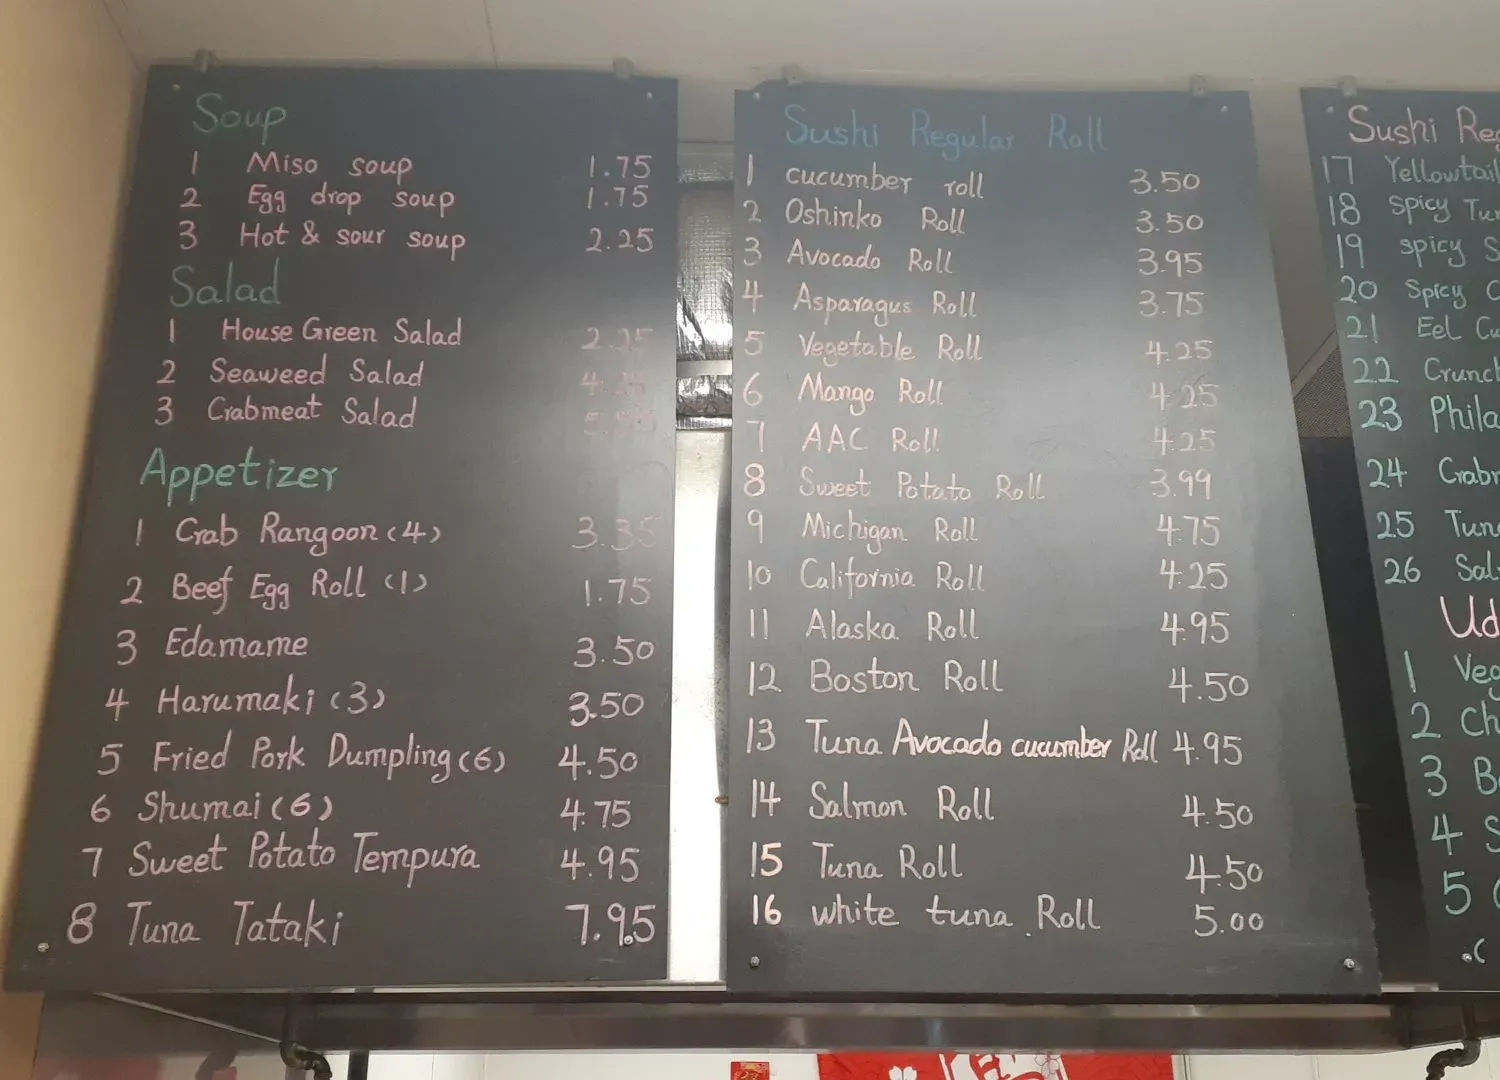 Soup
1 Miso soup 1.75
2 Egg drop soup 1.75
3 Hot & sour soup 2.25
Salad
1 House Green Salad 2.25
2 Seaweed Salad 4.25
3 Crabmeat Salad
Appetizer
1 Crab Rangoon (4) 3.35
2 Beef Egg Roll (1) 1.75
3 Edamame 3.50
4 Harumaki (3) 3.50
5 Fried Pork Dumpling (6) 4.50
6 Shumai (6) 4.75
7 Sweet Potato Tempura 4.95
8 Tuna Tataki 7.95
Sushi Regular Roll
1 cucumber roll 3.50
2 Oshinko Roll 3.50
3 Avocado Roll 3.95
4 Asparagus Roll 3.75
5 Vegetable Roll 4.25
6 Mango Roll 4.25
7 AAC Roll 4.25
8 Sweet Potato Roll 3.99
9 Michigan Roll 4.75
10 California Roll 4.25
11 Alaska Roll 4.95
12 Boston Roll 4.50
13 Tuna Avocado cucumber Roll 4.95
14 Salmon Roll 4.50
15 Tuna Roll 4.50
16 white tuna Roll 5.00
Sushi Reg
17 Yellowtail
18 Spicy Tun
19 spicy S
20 Spicy C
21 Eel Cu
22 Crunch
23 Phila
24 Crabm
25 Tuna
26 Sal
Ud
1 Veg
2 Ch
3 B
4 S
5